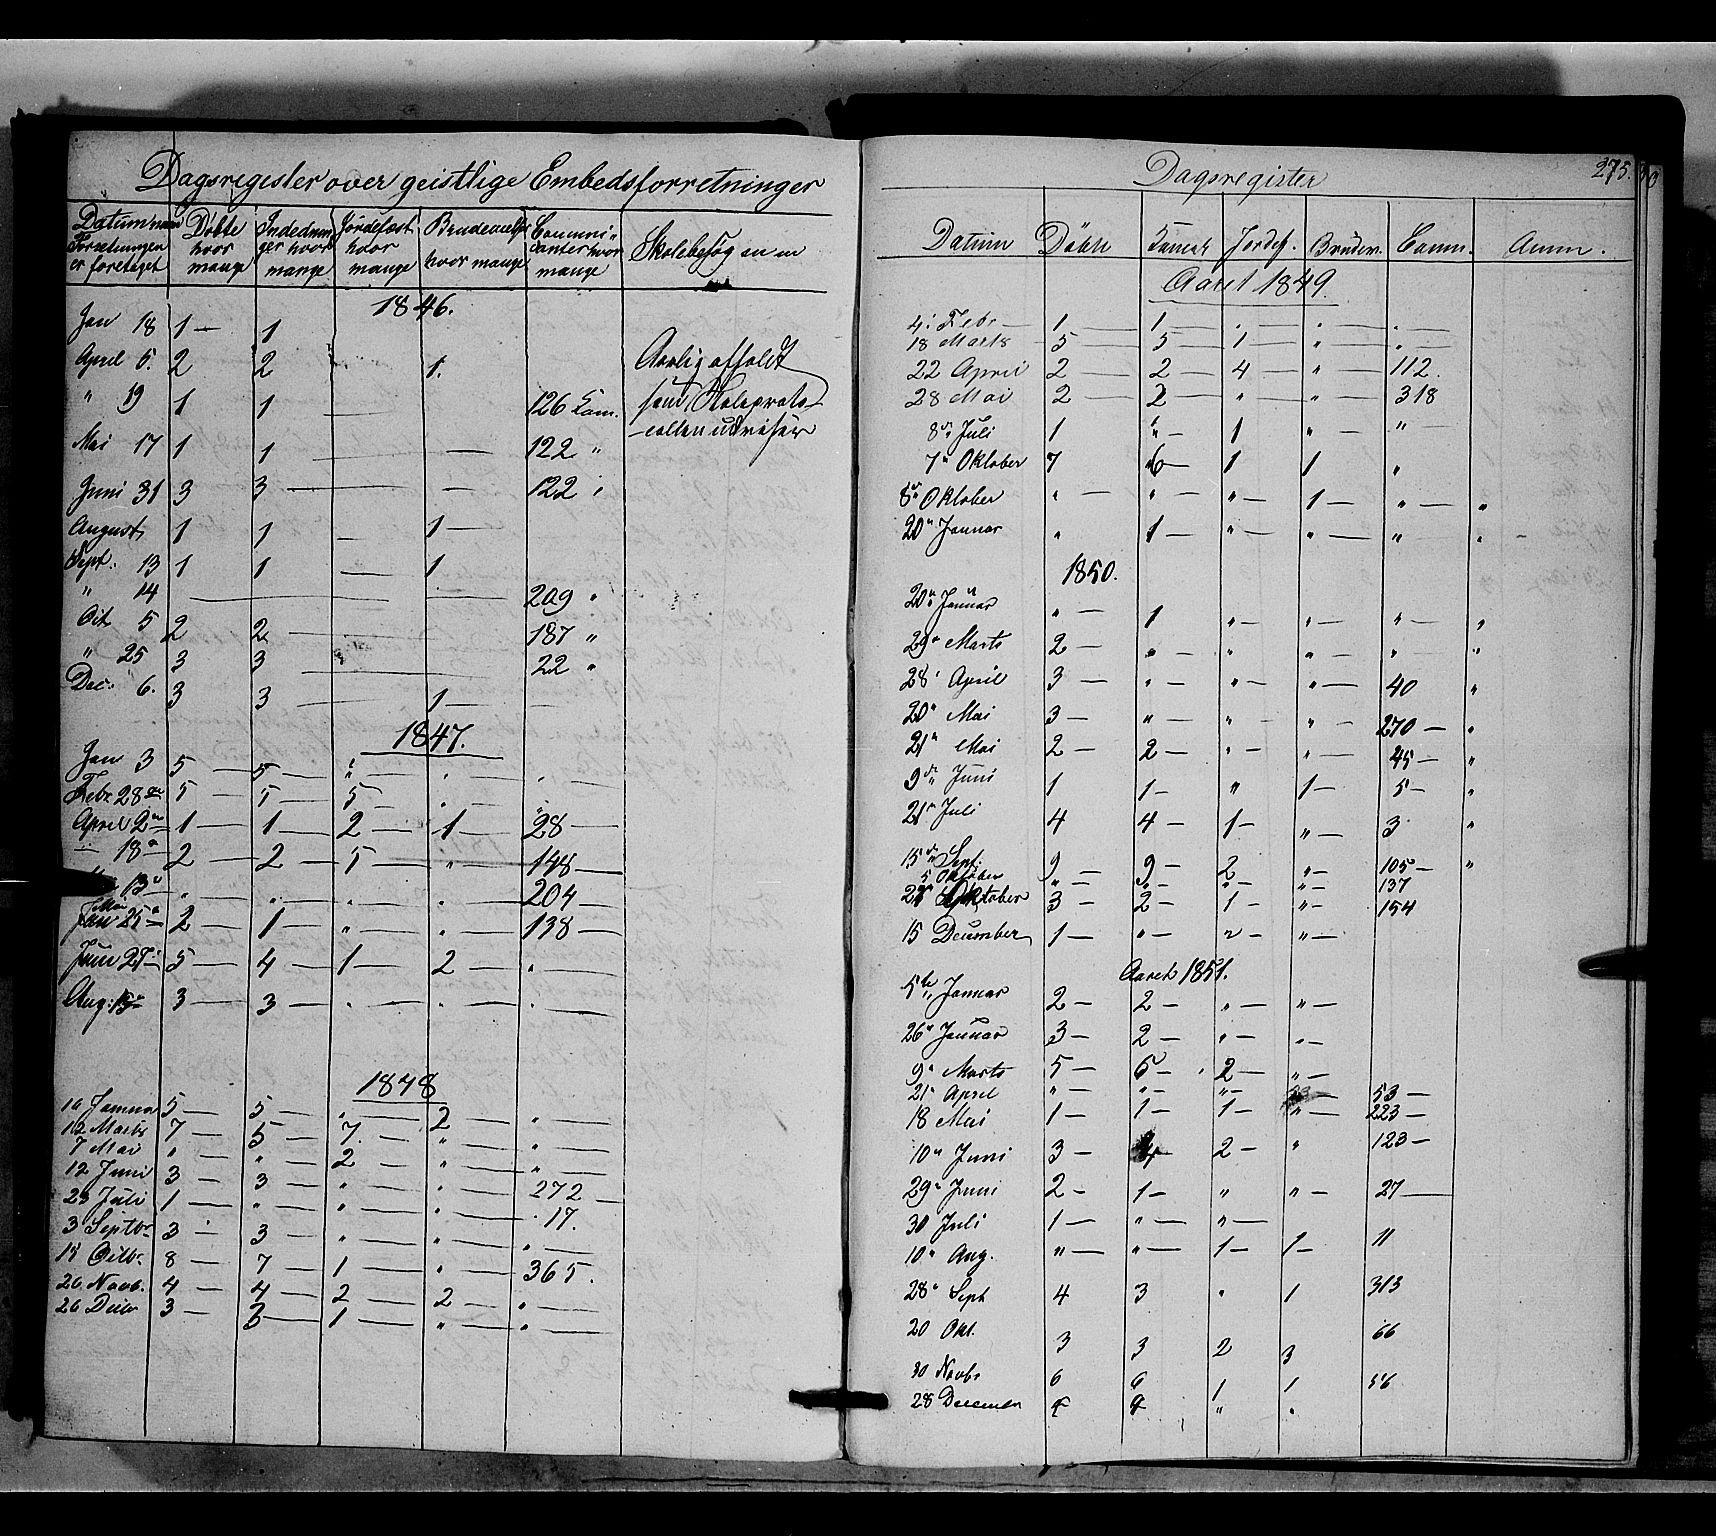 Dagsregister over geistlige Embedsforretninger
Datum naar Forretningen er foretaget | Døbte hvor mange | Indledninger hvor mange | Jordfæst hvor mange | Brudevielser hvor mange | Communicanter hvor mange | Skolebesøg
1846.
Jan 18 1 — 1
April 5. 2 2 1. Aarlig afholdt
" 19 1 1 — 126 Com. som Skoleproto-
Mai 17 1 1 — — 122 " -collen udviser
Juni 31 3 3 — — — 122 "
August 1 1 — 1 —
Sept. 13 1 1 — 1
" 14 — — — — 209 "
Oct 5 2 2 — — — 187 "
" 25 3 3 — — 22 "
Dec. 6. 3 3 — 1 —
1847.
Jan 3 5 — 5 — " — " — "
Febr 28 5 — 5 — 5 — " — "
April 2 1 — 1 — 2 — 1 — 28 —
18 2 — 2 — 5 — " — 148 —
13 " — " — " — " — 204 —
Mai 25 2 — 1 — " — " — 138 —
Juni 27 5 — 4 — 1 — 2 — "
Aug. 15 3 — 3 — " — " — "
1848
16 Januar 5 — 5 — " — 2 — " —
12 Marts 7 — 5 — 7. — " — " —
7 Mai " — " — 2 — " — " —
12 Juni 3 — 3 — " — " — 272 —
23 Juli 1 — " — " — " — 17.
3 Septbr 3 — 3 — " — " — " —
15 Octbr. 8 — 7 — 1 — " — 365.
26 Novb. 4 — 4 — 2 — 2 — " —
26 Decbr 3 — 3 — 1 — " — " —
Dagsregister
275.
Datum Døbte Jordf. Brudev. Comm. Anm.
Aaret 1849.
4. Febr — 1 — 1 — " — " — " —
18 Marts — 5 — 5 — 1 — " — " —
22 April 2 — 2 — 4 — " — 112.
28 Mai 2 — 2 — " — " — 318
8 Juli 1 " — 1 — " — "
7 Oktober 7 6 — 1 1 "
8 Oktober " — " — " — 1 — " — "
20 Januar " 1 — " — " — " "
1850.
20 Januar " — 1 " — " — " — "
29 Marts 2 — " — " — " — " — "
28 April 3 — " — " — " — 40 "
20 Mai 3 — " — " " — 270 — "
21 Mai 2 — 2 — " — " — 45 — "
9 Juni 1 1 — " 1 — 5 — "
21 Juli 4 4 — 1 — " — 3 "
15 Sept. 9 — 9 — 2 " — 105 — "
5 Oktober " — " — " — " — 137
Oktober 3 — 2 — 1 — " — 154
15 December 1 — " — 2 — " —
Aaret 1851.
5te Januar 2 — 2 — " — " —
26 Januar 3 — 2 — " — " —
9 Marts 5 — 5 — 2 — " —
21 April " — " — " — — 53 —
18 Mai 1 — 1 — 1 — " — 223 —
10 Juni 3 — 4 2 — " 123 —
29 Juni 2 — 1 — " " — 27 —
30 Juli 1 — " — " —
10 Aug. " — " — 1 — 1 — 11
28 Sept 4 3 " 1 313
20 Okt. 3 3 2 3 66
30 Novbr 6 6 1 1 56
28 December " "